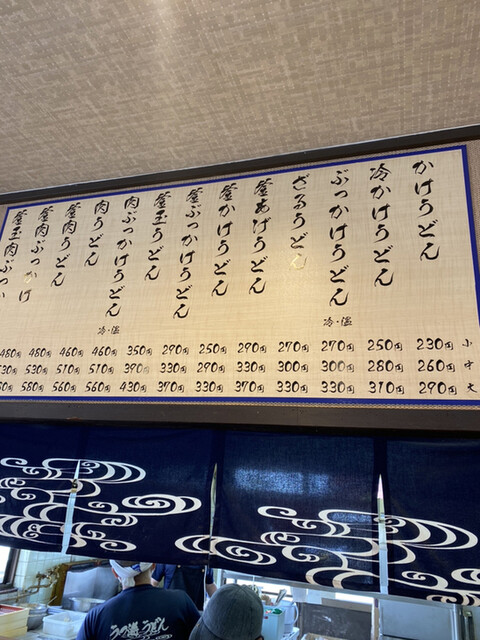 かけうどん
冷かけうどん
ぶっかけうどん
冷・温
ざるうどん
釜あげうどん
釜かけうどん
釜ぶっかけうどん
釜玉うどん
肉ぶっかけうどん
冷・温
肉うどん
釜肉うどん
釜肉ぶっかけ
釜玉肉ぶっか
小 230円 250円 270円 270円 290円 250円 290円 350円 460円 460円 480円 480円
中 260円 280円 300円 300円 330円 290円 330円 390円 510円 510円 530円
大 290円 310円 330円 330円 370円 330円 370円 430円 560円 560円 580円